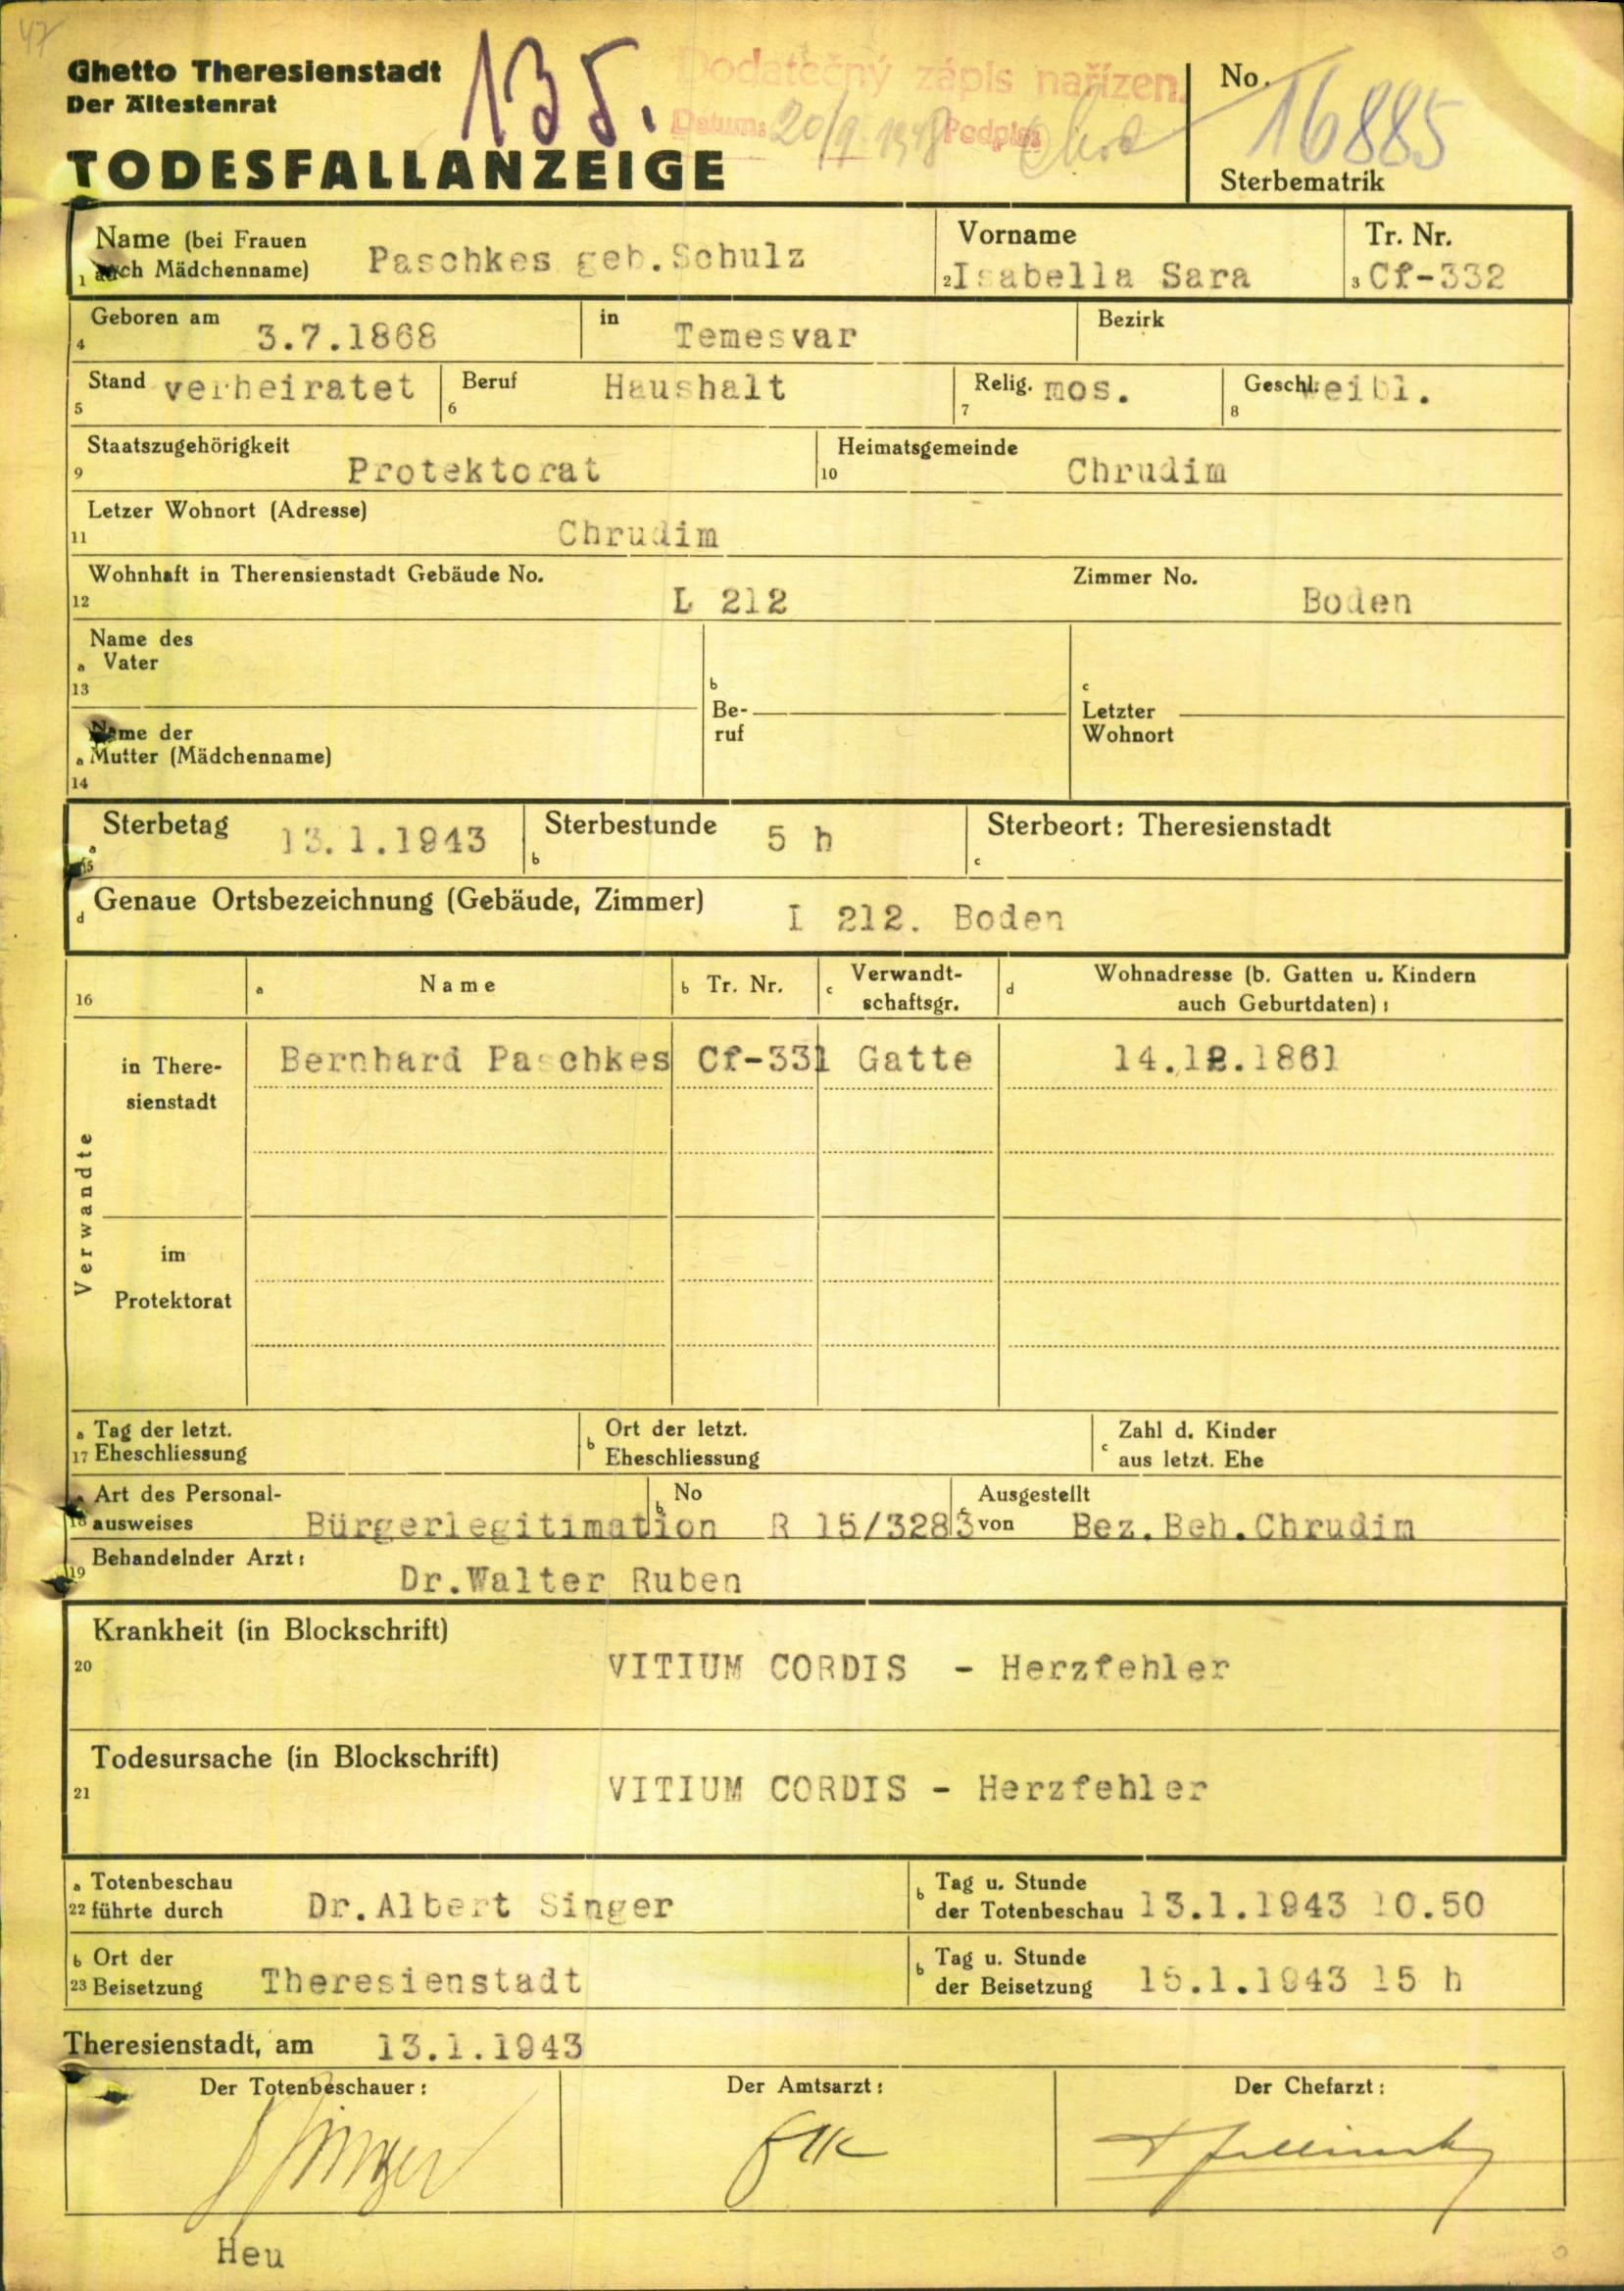 47
Ghetto Theresienstadt
Der Ältestenrat
135.
Dodatečný zápis nařízen.
Datum: 20/9. 1948 Podpis:
No. 16885
Sterbematrik
TODESFALLANZEIGE
Name (bei Frauen auch Mädchenname) Paschkes geb.Schulz
1
Vorname
2 Isabella Sara
Tr. Nr.
3 Cf-332
Geboren am 3.7.1868
4
in Temesvar
Bezirk
Stand verheiratet
5
Beruf Haushalt
6
Relig. mos.
7
Geschl. weibl.
8
Staatszugehörigkeit
9 Protektorat
Heimatsgemeinde
10 Chrudim
Letzer Wohnort (Adresse)
11 Chrudim
Wohnhaft in Therensienstadt Gebäude No. L 212
12
Zimmer No. Boden
Name des
a Vater
13
Name der
a Mutter (Mädchenname)
14
b
Be-
ruf
c
Letzter
Wohnort
Sterbetag 13.1.1943
a
15
Sterbestunde 5 h
b
Sterbeort: Theresienstadt
c
Genaue Ortsbezeichnung (Gebäude, Zimmer) I 212. Boden
d
16
a Name
b Tr. Nr.
c Verwandt-
schaftsgr.
d Wohnadresse (b. Gatten u. Kindern
auch Geburtdaten):
Verwandte
in There-
sienstadt
Bernhard Paschkes Cf-331 Gatte 14.12.1861
im
Protektorat
a Tag der letzt.
17 Eheschliessung
b Ort der letzt.
Eheschliessung
c Zahl d. Kinder
aus letzt. Ehe
a Art des Personal-
18 ausweises Bürgerlegitimation
b No R 15/3283
c Ausgestellt
von Bez.Beh.Chrudim
Behandelnder Arzt:
19 Dr.Walter Ruben
Krankheit (in Blockschrift)
20 VITIUM CORDIS - Herzfehler
Todesursache (in Blockschrift)
21 VITIUM CORDIS - Herzfehler
a Totenbeschau
22 führte durch Dr.Albert Singer
b Tag u. Stunde
der Totenbeschau 13.1.1943 10.50
b Ort der
23 Beisetzung Theresienstadt
b Tag u. Stunde
der Beisetzung 15.1.1943 15 h
Theresienstadt, am 13.1.1943
Der Totenbeschauer:
Singer
Der Amtsarzt:
Der Chefarzt:
Heu